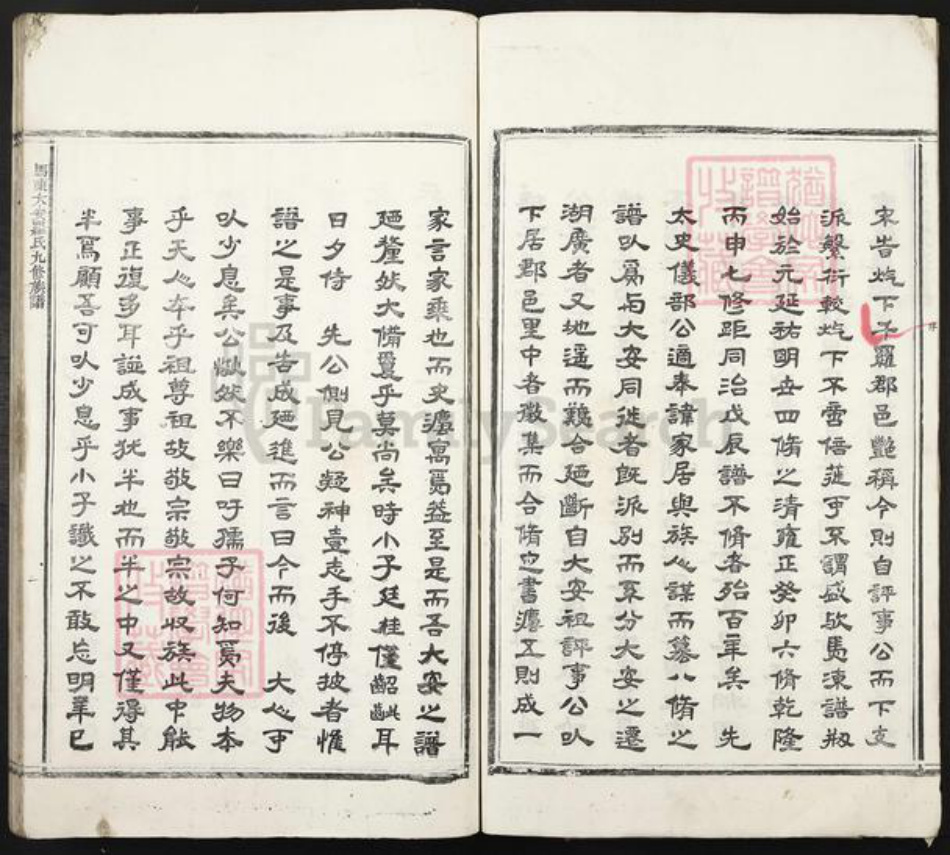 宋告炝下子羅郡邑艷稱今則自評事公而下支
派繁衍較炝下不啻倍蓰可不謂盛歟馬湅譜剏
始於元延祐明世四脩之清雍正癸卯六脩乾隆
丙申七修距同治戊辰譜不脩者殆百年矣 先
太史儀部公適奉諱家居與族人謀而纂八脩之
譜以爲与大安同徙者既派別而系分大安之遷
湖廣者又地遥而難合廼斷自大安祖評事公以
下居郡邑里中者徵集而合脩定書灋五則成一
家言家乘也而史灋寓焉葢至是而吾大安之譜
廼釐然大備夐乎莫尚矣時小子廷桂僅齠齔耳
日夕侍 先公側見公凝神壹志手不停披者惟
譜之是事及告成廼進而言曰今而後 大人可
以少息矣公愀然不樂曰吁孺子何知焉夫物本
乎天人本乎祖尊祖故敬宗敬宗故收族此中骯
事正復多耳諡成事犹半也而半之中又僅得其
半焉顧吾可以少息乎小子識之不敢忘明年已
馬湅大安羅氏九修族譜
序
FamilySearch